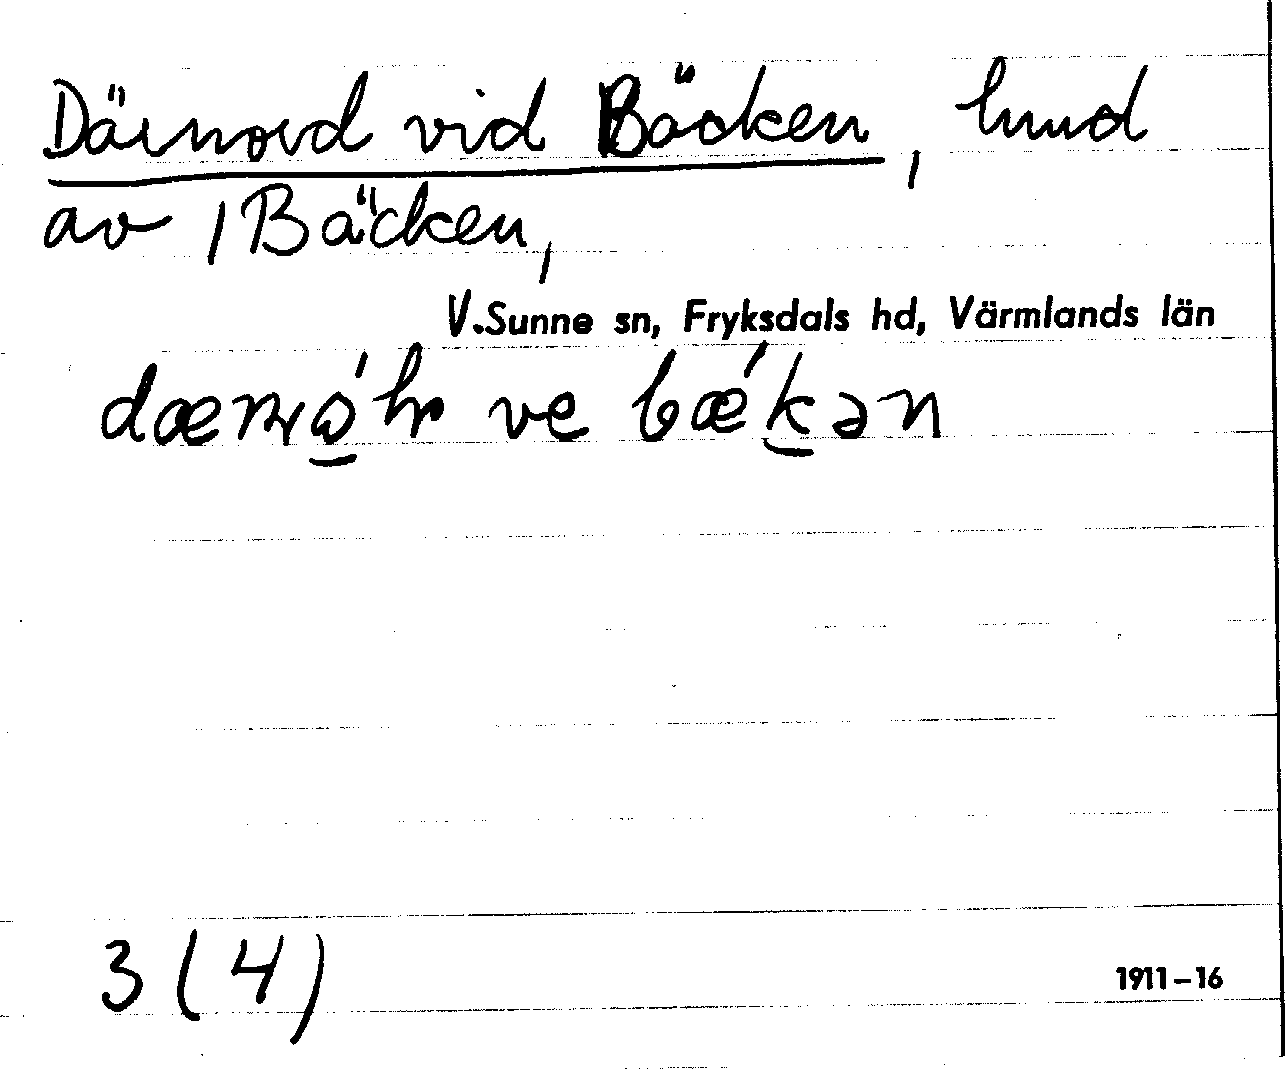 Därnord vid Bäcken, hmd
av 1 Bäcken,
V.Sunne sn, Fryksdals hd, Värmlands län
ve bǽk̲ən
3(4)
1911-16